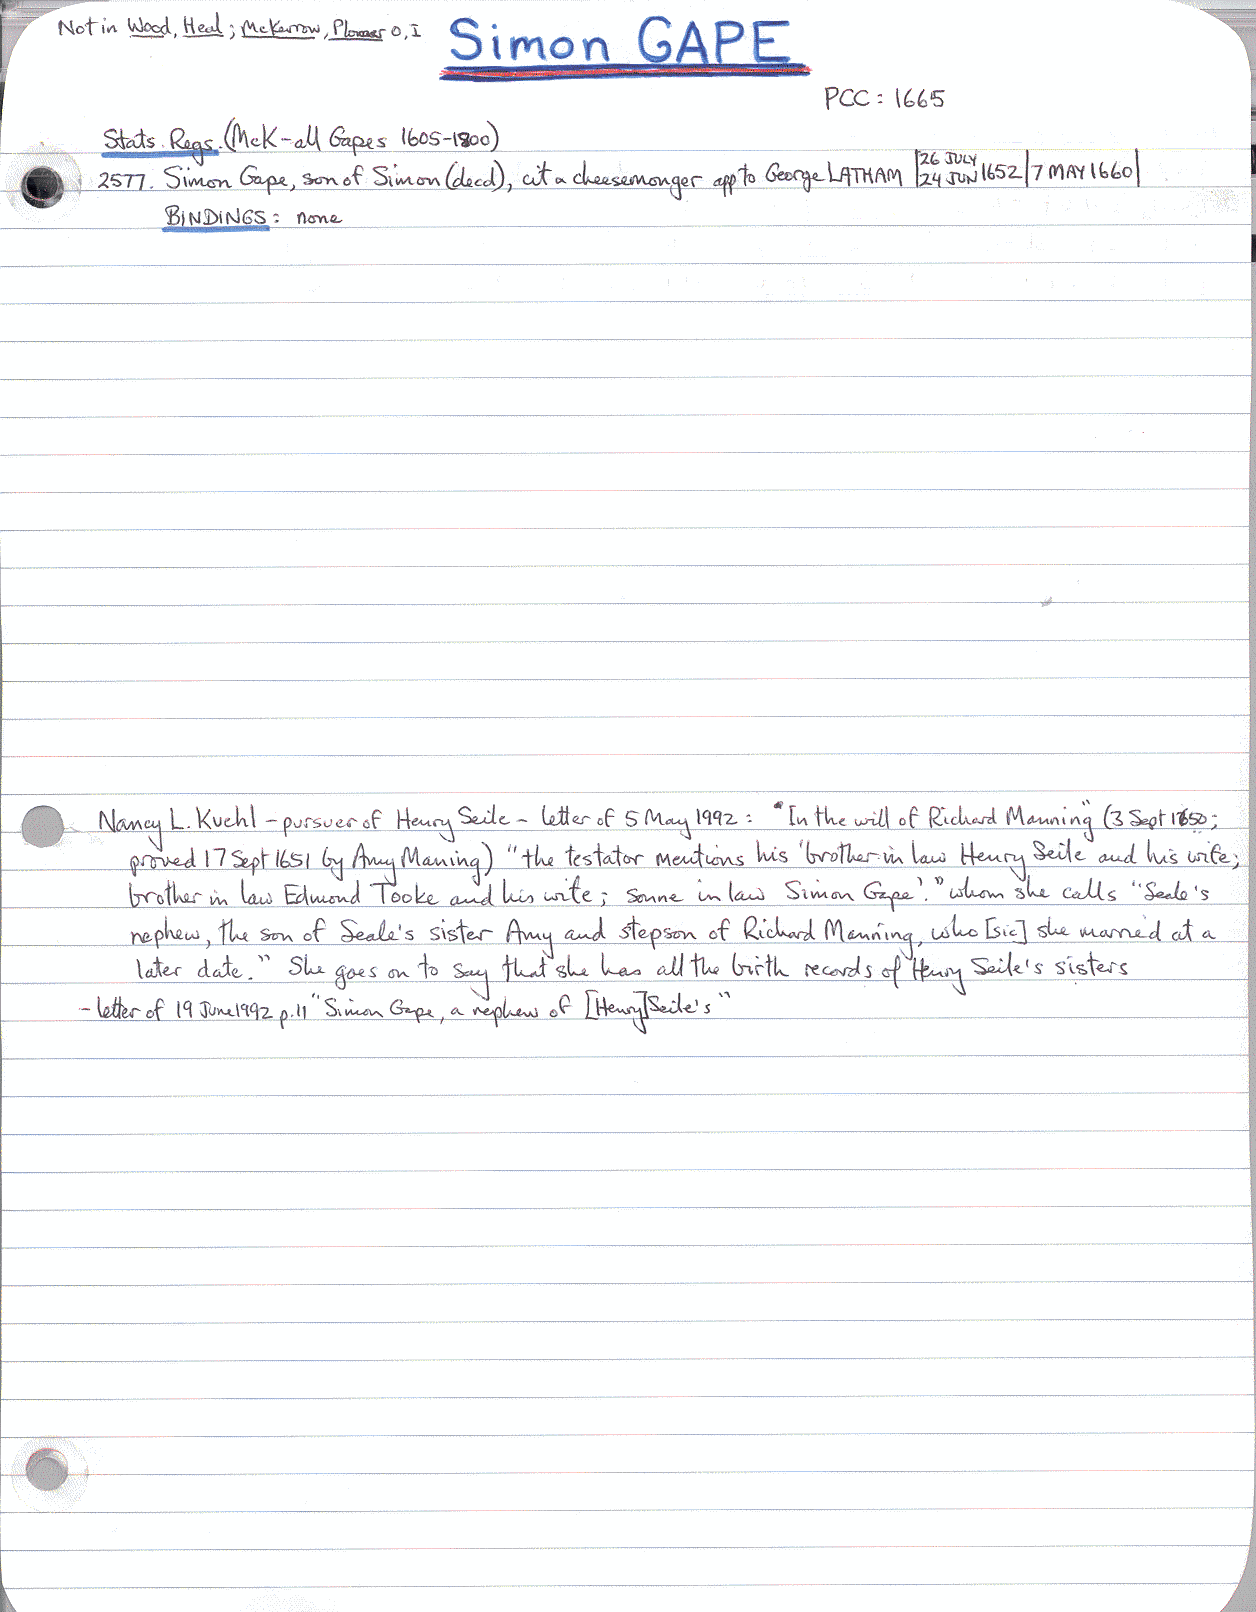 Not in Wood, Heal; McKerrow, Plomer O, I
Simon GAPE
PCC: 1665
Stats. Regs. (McK - all Gapes 1605-1800)
2577. Simon Gape, son of Simon (decd), cit & cheesemonger app to George LATHAM | 26 JULY 24 JUN 1652 | 7 MAY 1660 |
BINDINGS: none
Nancy L. Kuehl - pursuer of Henry Seile - letter of 5 May 1992: "In the will of Richard Manning" (3 Sept 1650;
proved 17 Sept 1651 by Amy Maning) "the testator mentions his 'brother in law Henry Seile and his wife;
brother in law Edmond Tooke and his wife; sonne in law Simon Gape'." whom she calls "Seale's
nephew, the son of Seale's sister Amy and stepson of Richard Manning, who [sic] she married at a
later date." She goes on to say that she has all the birth records of Henry Seile's sisters
- letter of 19 June 1992 p.11 "Simon Gape, a nephew of [Henry] Seile's"